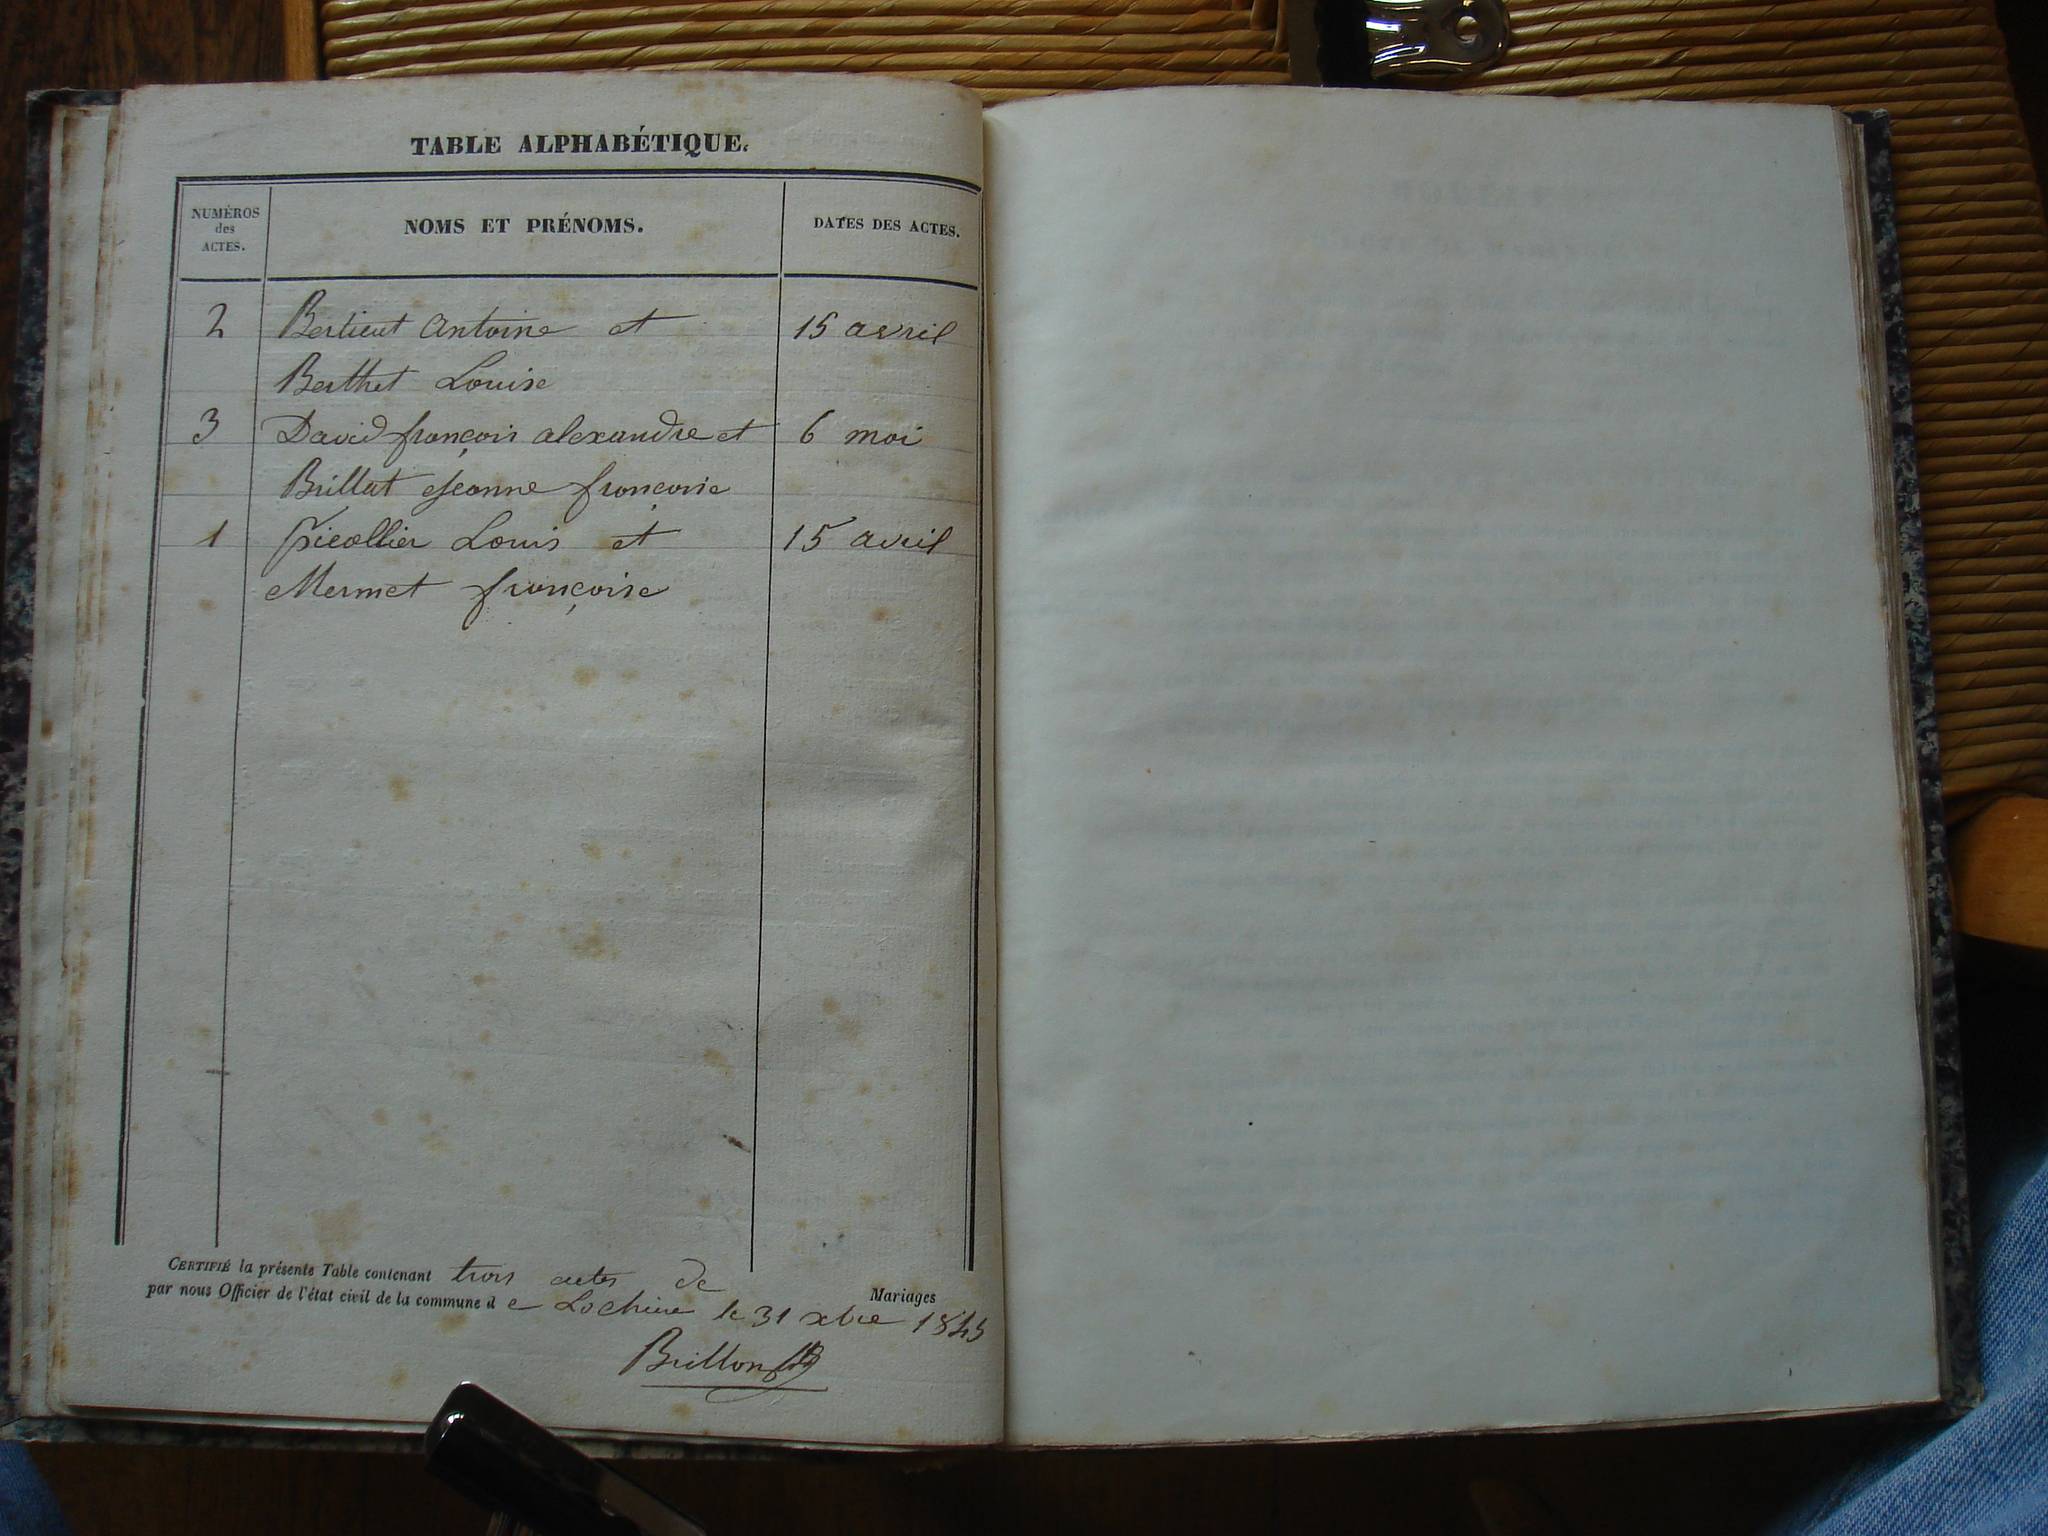 TABLE ALPHABÉTIQUE.
NUMÉROS
des
ACTES.
NOMS ET PRÉNOMS.
DATES DES ACTES.
2 Bertieut Antoine et 15 avril
Berthet Louise
3 David françois alexandre et 6 mai
Brillat Jeanne françoise
1 Picollier Louis et 15 avril
Mermet françoise
CERTIFIÉ la présente Table contenant trois actes de Mariages
par nous Officier de l'état civil de la commune d e Lochieu le 31 xbre 1845
Brillon